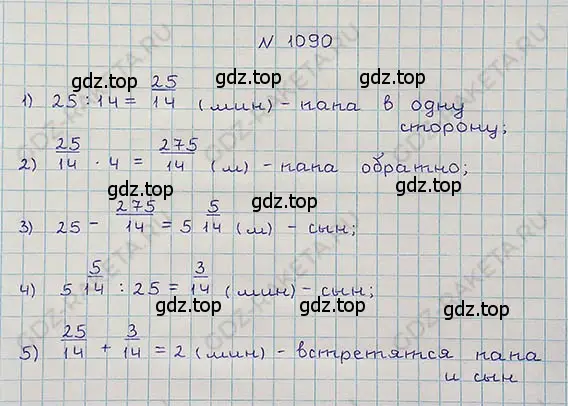 N 1090
1) 25 : 14 = 25/14 (мин) - папа в одну
сторону;
2) 25/14 · 4 = 275/14 (м) - папа обратно;
3) 25 - 275/14 = 5 5/14 (м) - сын;
4) 5 5/14 : 25 = 3/14 (мин) - сын;
5) 25/14 + 3/14 = 2 (мин) - встретятся папа
и сын
gdz.top
gdz.top
gdz.top
gdz.top
gdz.top
gdz.top
gdz.top
gdz.top
gdz.top
gdz.top
GDZ-RAKETA.RU
GDZ-RAKETA.RU
GDZ-RAKETA.RU
GDZ-RAKETA.RU